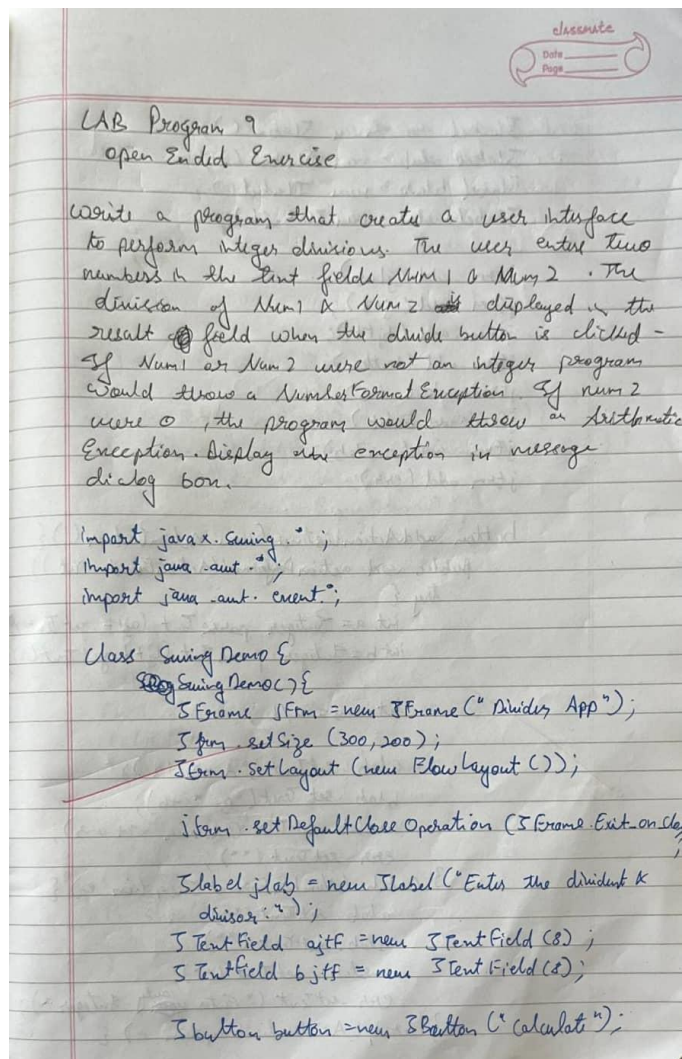 classmate
Date
Page
LAB Program 9
open Ended Exercise
Write a program that creates a user interface
to perform integer divisions. The user enters two
numbers in the text fields Num1 & Num2. The
division of Num1 & Num2 displayed in the
result field when the divide button is clicked -
If Num1 or Num2 were not an integer program
would throw a NumberFormatException If num2
were 0, the program would throw an Arithmetic
Exception. Display the exception in message
dialog box.
import javax.swing.*;
import java.awt.*;
import java.awt.event.*;
class SwingDemo {
SwingDemo(){
JFrame jFrm = new JFrame("Divider App");
Jfrm.setSize(300,200);
Jfrm.setLayout(new FlowLayout());
jfrm.setDefaultCloseOperation(JFrame.Exit_on_clo
;
Jlabel jlab = new JLabel("Enter the divident &
divisor:");
JTextField ajtf = new JTextField(8);
JTextfield bjtf = new JTextField(8);
Jbutton button = new JButton("calculate");